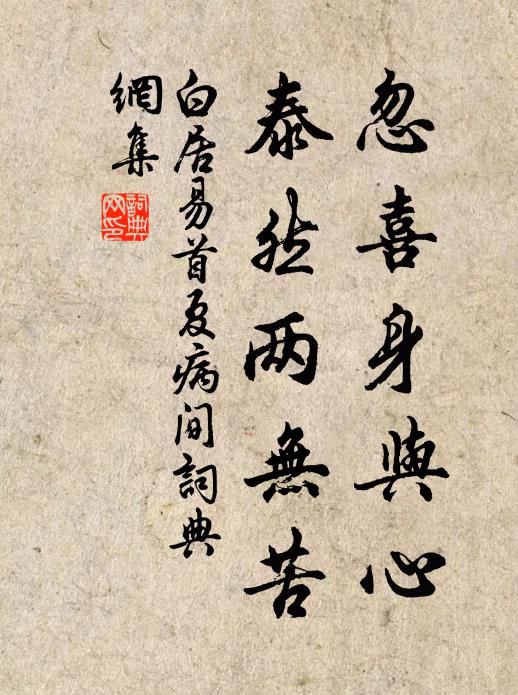 忽喜身與心
泰然两無苦
白居易首夏病间詞典
網集
詞典
网印